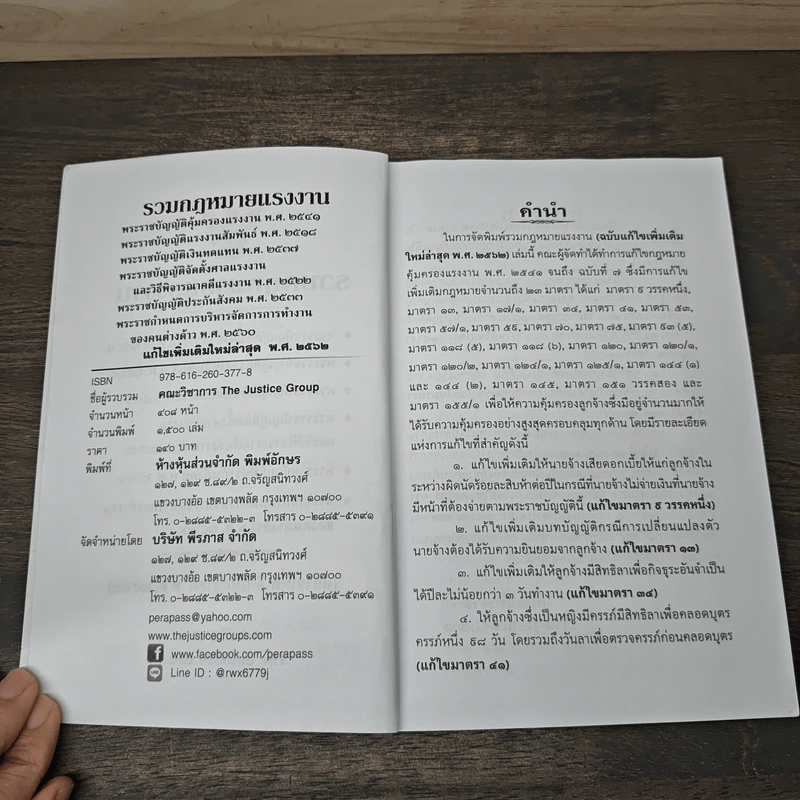 รวมกฎหมายแรงงาน
พระราชบัญญัติคุ้มครองแรงงาน พ.ศ. ๒๕๔๑
พระราชบัญญัติแรงงานสัมพันธ์ พ.ศ. ๒๕๑๘
พระราชบัญญัติเงินทดแทน พ.ศ. ๒๕๓๗
พระราชบัญญัติจัดตั้งศาลแรงงาน
และวิธีพิจารณาคดีแรงงาน พ.ศ. ๒๕๒๒
พระราชบัญญัติประกันสังคม พ.ศ. ๒๕๓๓
พระราชกำหนดการบริหารจัดการการทำงาน
ของคนต่างด้าว พ.ศ. ๒๕๖๐
แก้ไขเพิ่มเติมใหม่ล่าสุด พ.ศ. ๒๕๖๒
ISBN 978-616-260-377-8
ชื่อผู้รวบรวม คณะวิชาการ The Justice Group
จำนวนหน้า ๔๐๘ หน้า
จำนวนพิมพ์ ๑,๕๐๐ เล่ม
ราคา ๑๔๐ บาท
พิมพ์ที่ ห้างหุ้นส่วนจำกัด พิมพ์อักษร
๑๒๗, ๑๒๙ ซ.๘๙/๒ ถ.จรัญสนิทวงศ์
แขวงบางอ้อ เขตบางพลัด กรุงเทพฯ ๑๐๗๐๐
โทร. ๐-๒๘๘๕-๕๓๒๒-๓ โทรสาร ๐-๒๘๘๕-๕๓๙๑
จัดจำหน่ายโดย บริษัท พีรภาส จำกัด
๑๒๗, ๑๒๙ ซ.๘๙/๒ ถ.จรัญสนิทวงศ์
แขวงบางอ้อ เขตบางพลัด กรุงเทพฯ ๑๐๗๐๐
โทร. ๐-๒๘๘๕-๕๓๒๒-๓ โทรสาร ๐-๒๘๘๕-๕๓๙๑
perapass@yahoo.com
www.thejusticegroups.com
www.facebook.com/perapass
Line ID : @rwx6779j
คำนำ
ในการจัดพิมพ์รวมกฎหมายแรงงาน (ฉบับแก้ไขเพิ่มเติม
ใหม่ล่าสุด พ.ศ. ๒๕๖๒) เล่มนี้ คณะผู้จัดทำได้ทำการแก้ไขกฎหมาย
คุ้มครองแรงงาน พ.ศ. ๒๕๔๑ จนถึง ฉบับที่ ๗ ซึ่งมีการแก้ไข
เพิ่มเติมกฎหมายจำนวนถึง ๒๓ มาตรา ได้แก่ มาตรา ๙ วรรคหนึ่ง,
มาตรา ๑๓, มาตรา ๑๗/๑, มาตรา ๓๔, มาตรา ๔๑, มาตรา ๕๓,
มาตรา ๕๗/๑, มาตรา ๕๙, มาตรา ๗๐, มาตรา ๗๕, มาตรา ๙๓ (๕),
มาตรา ๑๑๘ (๕), มาตรา ๑๑๘ (๖), มาตรา ๑๒๐, มาตรา ๑๒๐/๑,
มาตรา ๑๒๐/๒, มาตรา ๑๒๔/๑, มาตรา ๑๒๕/๑, มาตรา ๑๔๔ (๑)
และ ๑๔๔ (๒), มาตรา ๑๔๕, มาตรา ๑๕๑ วรรคสอง และ
มาตรา ๑๕๕/๑ เพื่อให้ความคุ้มครองลูกจ้างซึ่งมีอยู่จำนวนมากให้
ได้รับความคุ้มครองอย่างสูงสุดครอบคลุมทุกด้าน โดยมีรายละเอียด
แห่งการแก้ไขที่สำคัญดังนี้
๑. แก้ไขเพิ่มเติมให้นายจ้างเสียดอกเบี้ยให้แก่ลูกจ้างใน
ระหว่างผิดนัดร้อยละสิบห้าต่อปีในกรณีที่นายจ้างไม่จ่ายเงินที่นายจ้าง
มีหน้าที่ต้องจ่ายตามพระราชบัญญัตินี้ (แก้ไขมาตรา ๙ วรรคหนึ่ง)
๒. แก้ไขเพิ่มเติมบทบัญญัติกรณีการเปลี่ยนแปลงตัว
นายจ้างต้องได้รับความยินยอมจากลูกจ้าง (แก้ไขมาตรา ๑๓)
๓. แก้ไขเพิ่มเติมให้ลูกจ้างมีสิทธิลาเพื่อกิจธุระอันจำเป็น
ได้ปีละไม่น้อยกว่า ๓ วันทำงาน (แก้ไขมาตรา ๓๔)
๔. ให้ลูกจ้างซึ่งเป็นหญิงมีครรภ์มีสิทธิลาเพื่อคลอดบุตร
ครรภ์หนึ่ง ๙๘ วัน โดยรวมถึงวันลาเพื่อตรวจครรภ์ก่อนคลอดบุตร
(แก้ไขมาตรา ๔๑)